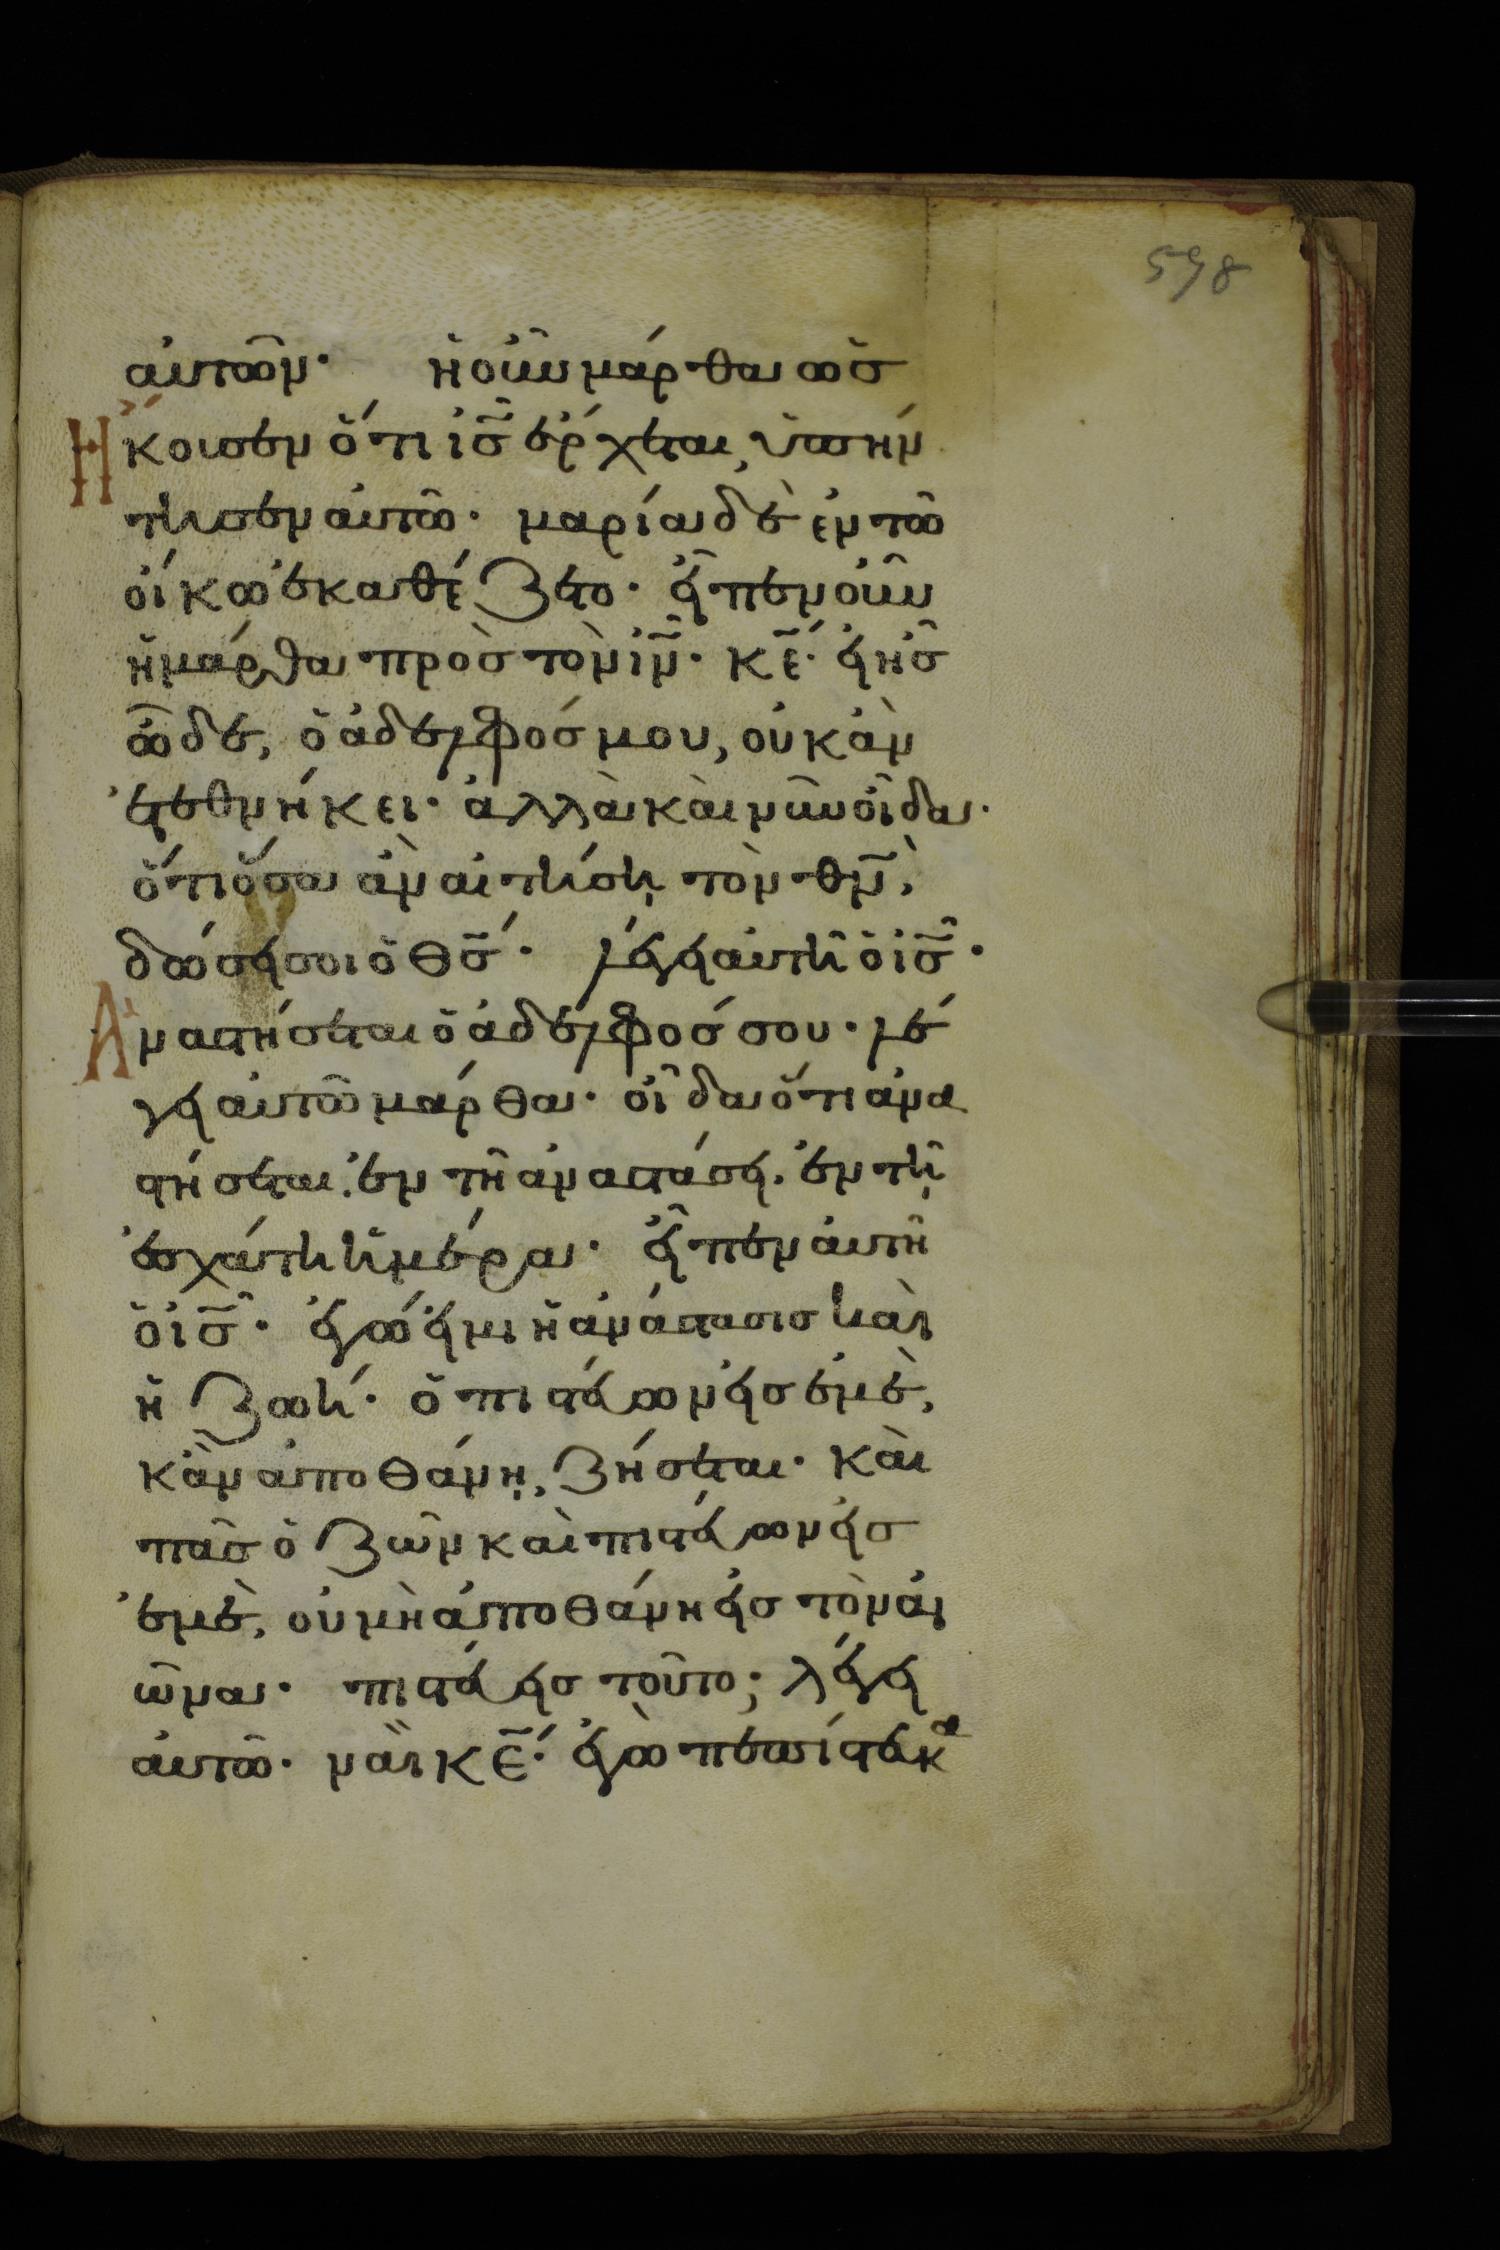 598
αὐτῶν· ἡ οὖν μάρθα ὡσ
Ἤκουσεν ὅτι ισ̅ ἔρχεται, ὑπήν
τησεν αὐτῶ· μαρία δὲ ἐν τῶ
οἴκω ἐκαθέζετο· εἶπεν οὖν
ἡ μάρθα πρὸσ τὸν ιν̅· κε̅· εἰ ἦσ
ὧδε, ὁ ἀδελφόσ μου, οὐκ ἂν
ἐτεθνήκει· ἀλλὰ καὶ νῦν οἶδα·
ὅτι ὅσα ἂν αἰτήση τὸν θν̅,
δώσει σοι ὁ θσ̅· λέγει αὐτῆ ὁ ισ̅·
Ἀναστήσεται ὁ ἀδελφόσ σου· λέ
γει αὐτῶ μάρθα· οἶδα ὅτι ἀνα
στήσεται, ἐν τῆ ἀναστάσει, ἐν τῆ
ἐσχάτη ἡμέρα· εἶπεν αὐτῆ
ὁ ισ̅· ἐγώ εἰμι ἡ ἀνάστασισ καὶ
ἡ ζωή· ὁ πιστεύων εἰσ ἐμὲ,
κἂν ἀποθάνη, ζήσεται· καὶ
πᾶσ ὁ ζῶν καὶ πιστεύων εἰσ
ἐμὲ, οὐ μὴ ἀποθάνη εἰσ τὸν αἰ
ῶνα· πιστεύεισ τοῦτο; λέγει
αὐτῶ· ναὶ κε̅· ἐγὼ πεπίστευκα